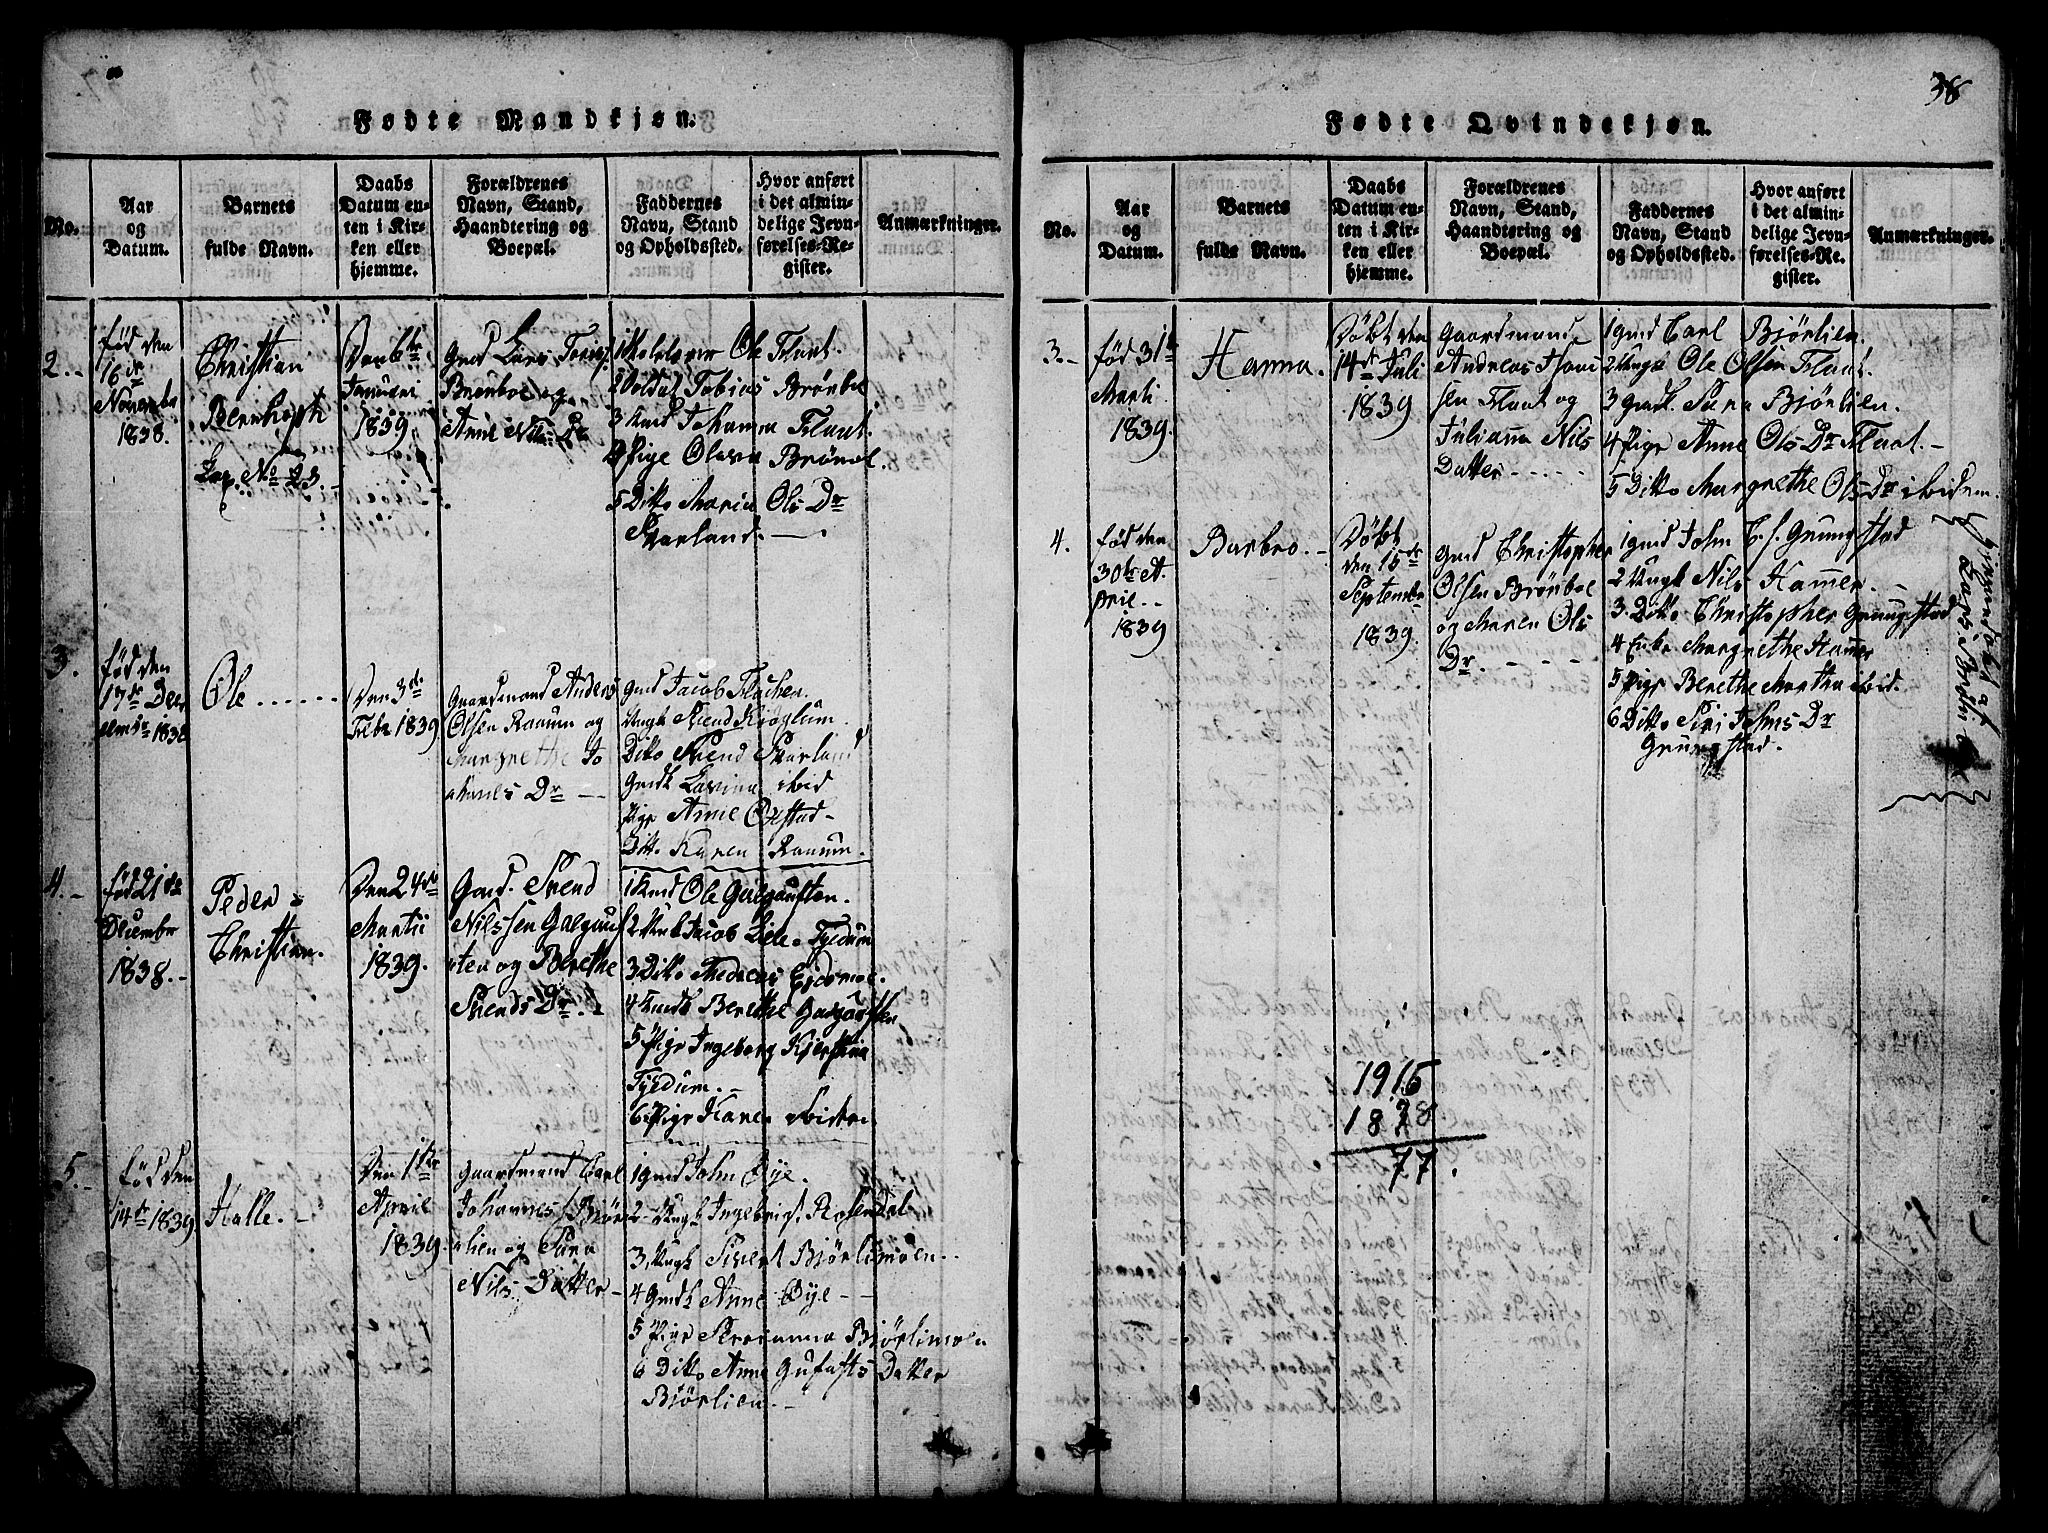 38
Fødte Mandkjøn.
No.
Aar
og
Datum.
Barnets
fulde Navn.
Daabs
Datum en-
ten i Kir-
ken eller
hjemme.
Forældrenes
Navn, Stand,
Haandtering og
Boepæl.
Faddernes
Navn, Stand
og Opholdssted.
Hvor anført
i det almin-
delige Jevn-
førelses-Re-
gister.
Anmærkninger.
2.
fød den
16de
Novembr
1838.
Christian
Bernhoph
No 23.
Den 6te
Januari
1839
Gmd Lars
Brønboe og
Anne Nils Dr
Ole Flaat.
2 Tobias Brønboe
3 Johanna Flaat.
4 Pige Olava Brønboe.
5 Ditto Maria Ols Dr
Skarland.
3.
fød den
17de Dec
embr 1838
Ole
Den 3de
Febr 1839
Gaardmand Anders
Olsen Raaum og
Margrethe Jo
hanes Dr
Gmd Jacob Flachen.
Ungk Svend Kjøglum.
Ditto Svend Skarland
Gmdk Lavina ibid
Pige Anne Øxstad
Ditto Karen Raaum.
4.
fød 21de
December
1838.
Peder
Christian.
Den 24de
Martii
1839.
Gmd. Svend
Nilssen Galgauf
ten og Berethe
Svends Dr.
1 Gmd Ole Galgauften.
2 Ungk Jacob Lille Fjedum
3 Ditto Andreas Eidsmoe.
4 Gmdk Berethe Galgauften
5 Pige Ingeborg Kjerstina
Fjedum.
6 Pige Karen ibidem
5.
fød den
14de 1839
Halle.
Den 1ste
April
1839.
Gaardmand Carl
Johannes Bjør
lien og Sara
Nils Datter
1 Gmd John Øye.
2 Ungk Ingebrigt Rosendal
3 Ungk Sivert Bjørlimoen
4 Gmdk Anne Øye
5 Pige Bjørlimoen
6 Ditto Anne Gufasts Datter
Bjørlien.
Fødte Qvindekjøn.
No.
Aar
og
Datum.
Barnets
fulde Navn.
Daabs
Datum en-
ten i Kir-
ken eller
hjemme.
Forældrenes
Navn, Stand,
Haandtering og
Boepæl.
Faddernes
Navn, Stand
og Opholdssted.
Hvor anført
i det almin-
delige Jevn-
førelses-Re-
gister.
Anmærkninger.
3.
fød 31te
Marti
1839.
Hanna.
Døbt den
14de Juli
1839
Gaardmand
Andreas Han
sen Flaat og
Julianna Nils
Datter
1 Gmd Carl Bjørlien.
2 Ungk Ole Olsen Flaat.
3 Gmdk. Sara Bjørlien.
4 Pige Anne Ols Dr Flaat.
5 Ditto Margrethe Ols Dr ibidem.
4.
fød den
30te A
pril
1839
Barbro.
Døbt
den 15de
Septembr
1839.
Gmd Christopher
Olsen Brønboe
og Maren Ols
Dr.
1 Gmd John C. S. Grungstad
2 Ungk Nils Hammer.
3. Ditto Christopher Grungstad
4 Enke Margrethe Hammer
5 Pige Berethe Martha ibid.
6 Ditto Siri Johns Dr
Grungstad.
1915
1838
77.